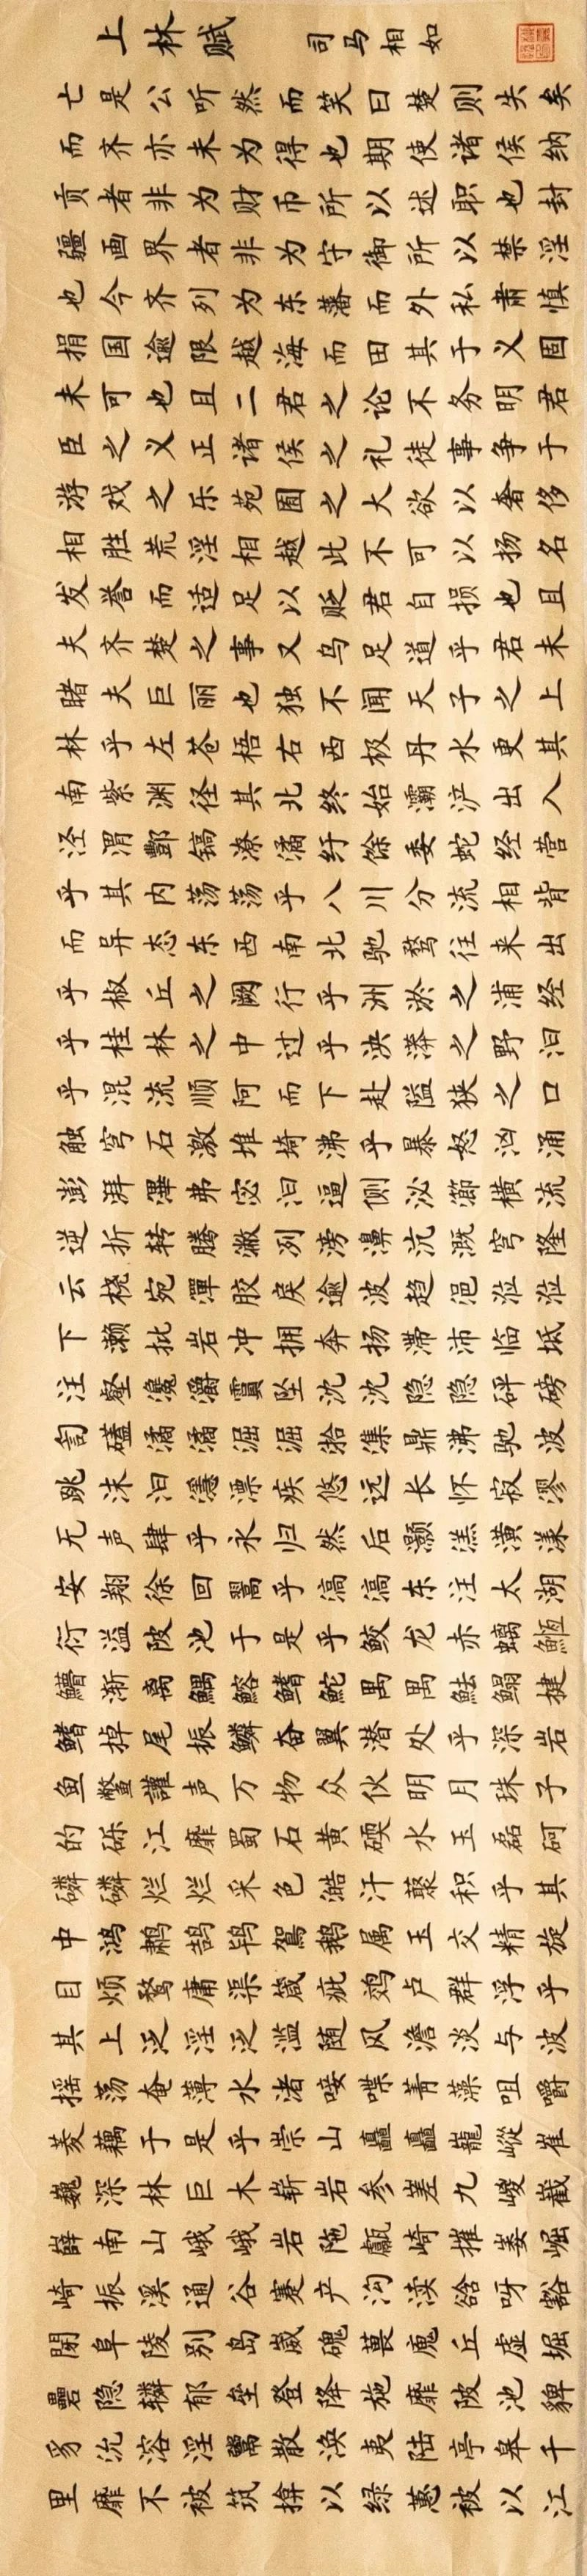 上林赋 司马相如
亡是公听然而笑曰楚则失矣
而齐亦未为得也期使诸侯纳
贡者非为财币所以述职也封
疆画界者非为守御所以禁淫
也今齐列为东藩而外私肃慎
捐国逾限越海而田其于义固
未可也且二君之论不务明君
臣之义正诸侯之礼徒事争于
游戏之乐苑囿之大欲以奢侈
相胜荒淫相越此不可以扬名
发誉而适足以贬君自损也且
夫齐楚之事又乌足道乎君未
睹夫巨丽也独不闻天子之上
林乎左苍梧右西极丹水更其
南紫渊径其北终始灞浐出入
泾渭酆镐潦潏纡馀委蛇经营
乎其内荡荡乎八川分流相背
而异态东西南北驰骛往来出
乎椒丘之阙行乎洲淤之浦经
乎桂林之中过乎泱漭之野汩
乎混流顺阿而下赴隘狭之口
触穹石激堆埼沸乎暴怒汹涌
澎湃滭弗宓汩逼侧泌瀄横流
逆折转腾潎冽滂濞沆溉穹隆
云桡宛潬胶戾逾波趋浥涖涖
下濑批岩冲拥奔扬滞沛临坻
注壑瀺灂霣坠沈沈隐隐砰磅
訇磕潏潏淈淈湁潗鼎沸驰波
跳沫汩漂疾悠远长怀寂漻
无声肆乎永归然后灏溔潢漾
安翔徐回翯乎滈滈东注太湖
衍溢陂池于是乎鲛龙赤螭䱍
䲛渐离鰅鰫鳍鮀禺禺魼鳎揵
鳍掉尾振鳞奋翼潜处乎深岩
鱼鳖讙声万物众伙明月珠子
的砾江靡蜀石黄碝水玉磊砢
磷磷烂烂采色澔汗藂积乎其
中鸿鹔鹄鸨鴐鹅属玉交精旋
目烦鹜庸渠箴疵鵁卢群浮乎
其上泛淫泛滥随风澹淡与波
摇荡奄薄水渚唼喋菁藻咀嚼
菱藕于是乎崇山矗矗巃嵷崔
巍深林巨木崭岩参差九嵕嶻
嶭南山峨峨岩陁甗崎摧崣崛
崎振溪通谷蹇产沟渎谽呀豁
閕阜陵别岛崴磈葨廆丘虚堀
礨隐辚郁垒登降施靡陂池貏
豸沇溶淫鬻散涣夷陆亭皋千
里靡不被筑揜以绿蕙被以江